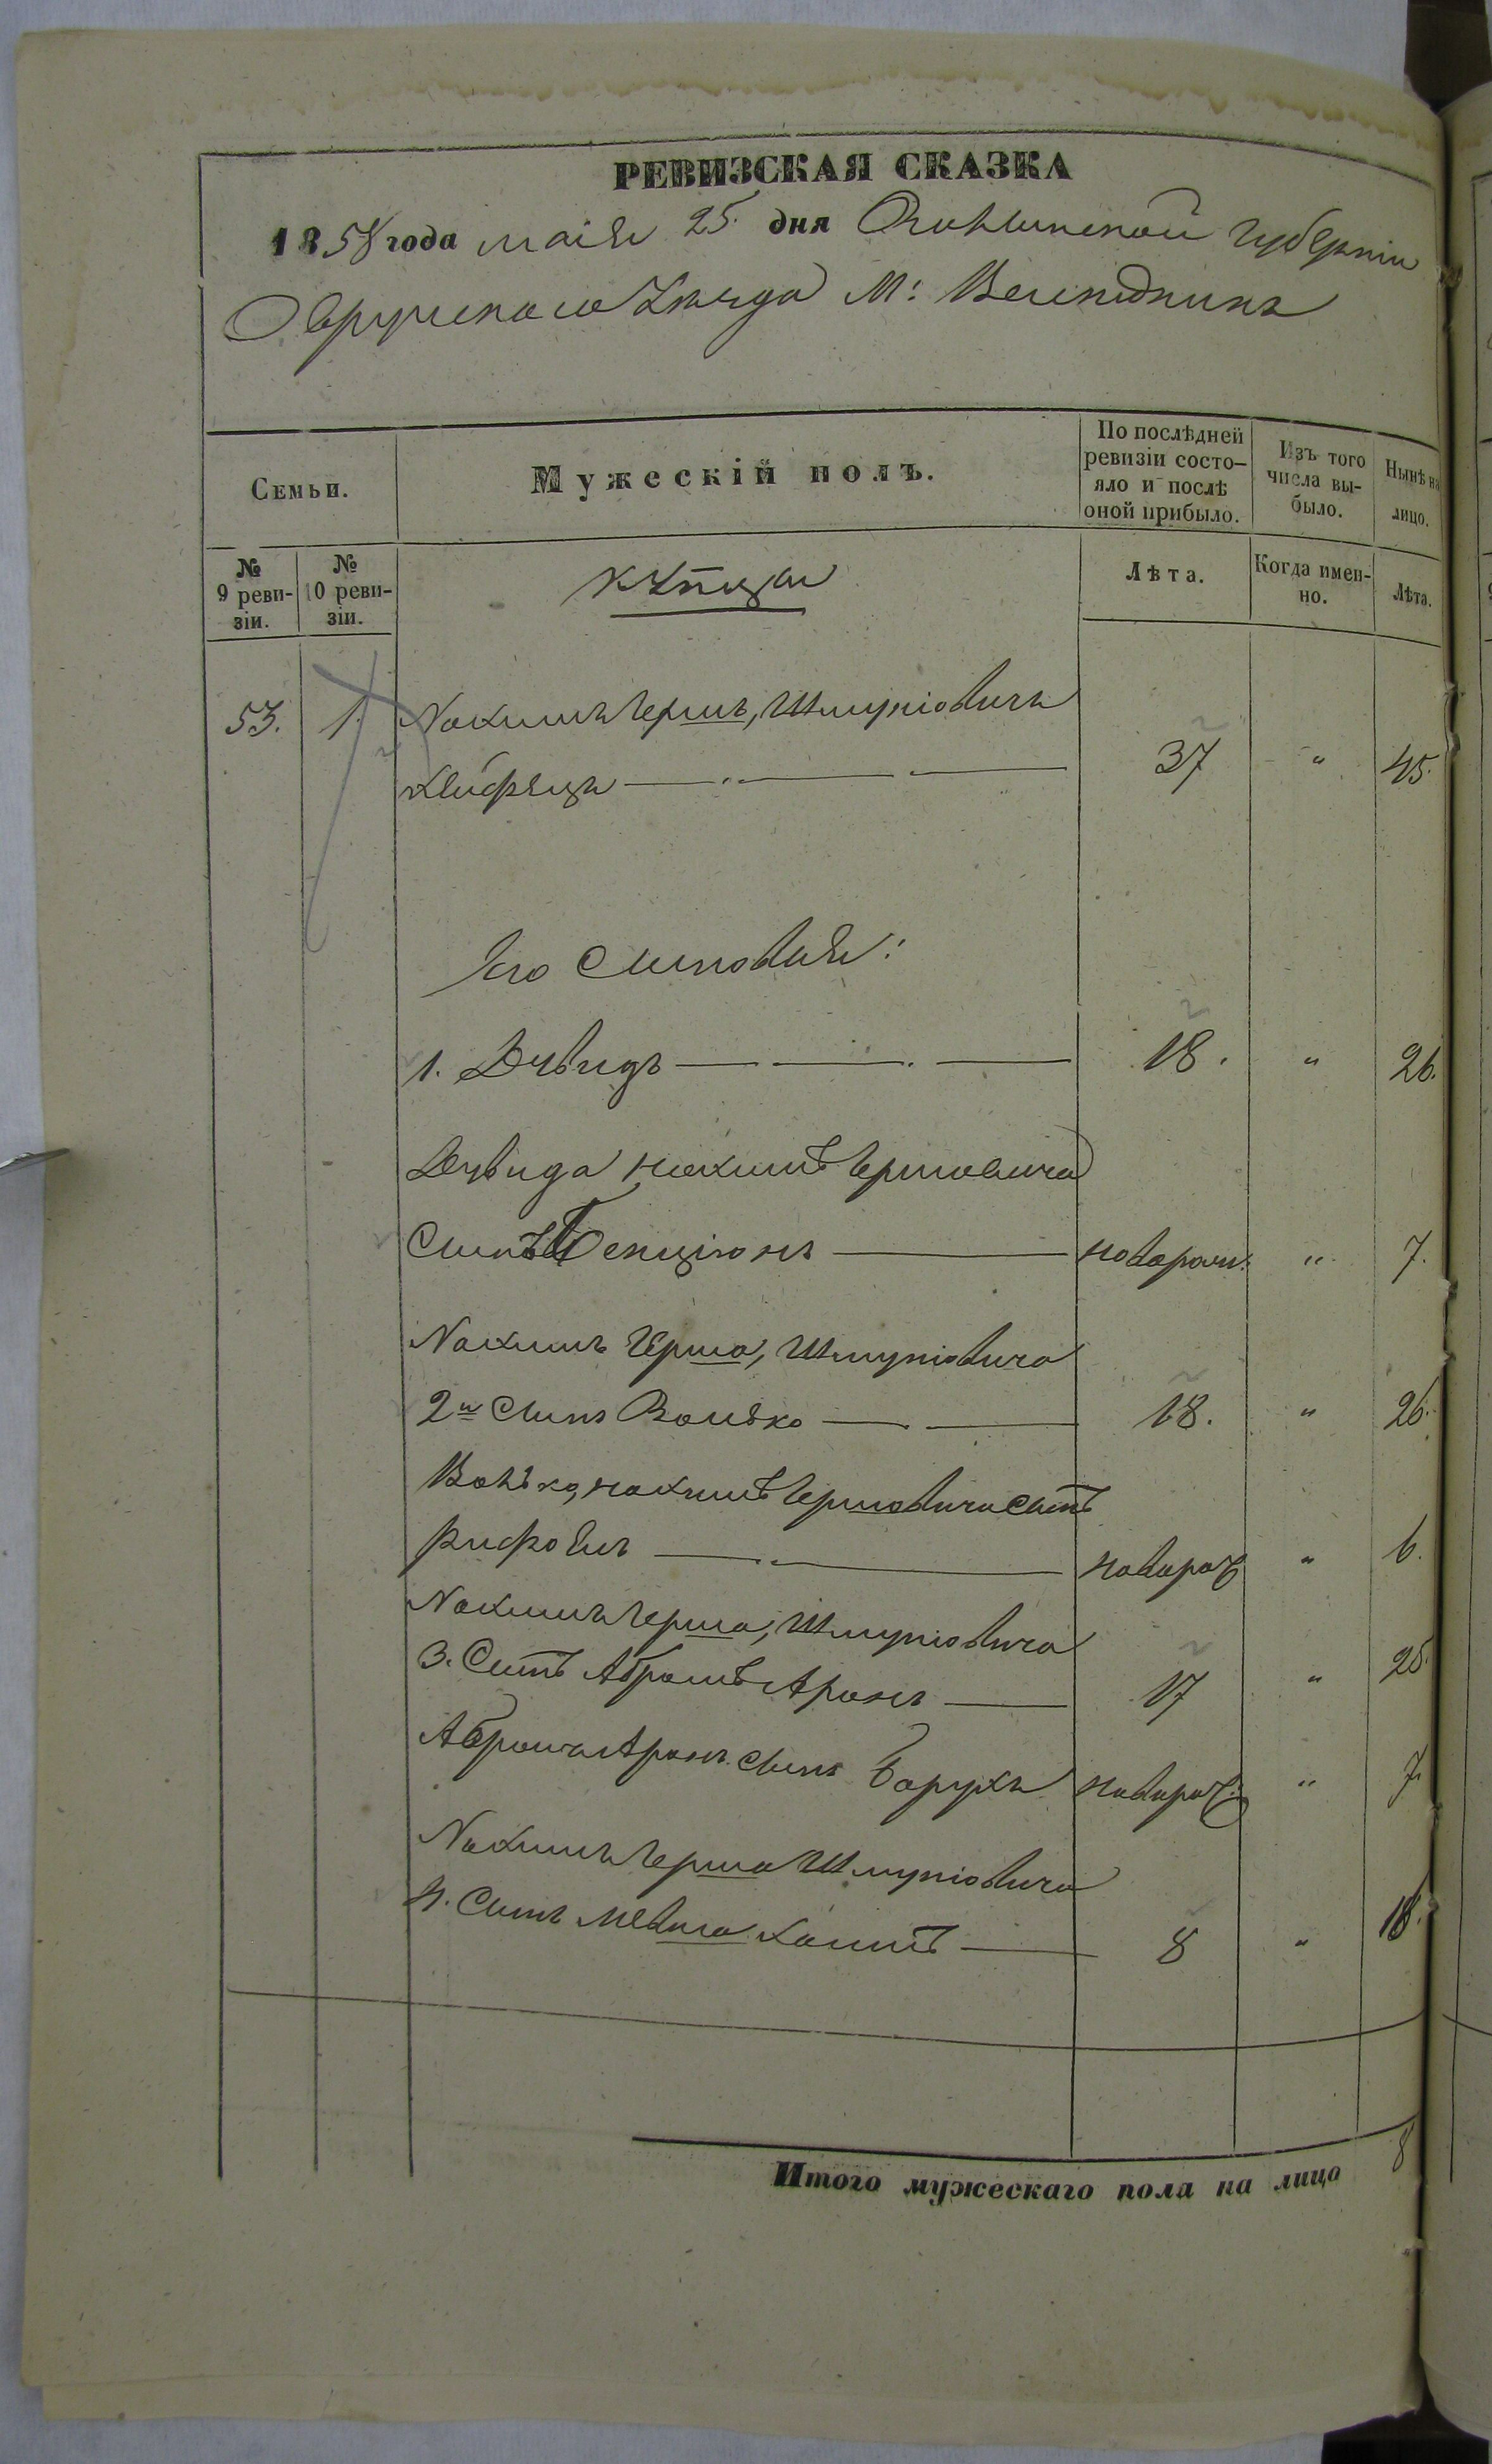 РЕВИЗСКАЯ СКАЗКА
1858 года маія 25. дня Волынской губерніи
Овручскаго Уѣзда М: Веледникъ
Семьи.
Мужескій полъ.
По послѣдней ревизіи состо-
яло и послѣ
оной прибыло.
Изъ того
числа вы-
было.
Нынѣ на
лицо.
№
9 реви-
зіи.
№
10 реви-
зіи.
купцы
Лѣта.
Когда имен-
но.
Лѣта.
53. 1. Нахимъ Гершъ, Шмуліовичъ
37 " 45.
Его Сыновья:
1. Дувидъ 18. " 26.
Дувида Нахимъ Гершовича
Сынъ Бенціонъ новорож: " 7.
Нахимъ Герша, Шмуліовича
2й Сынъ Волько 18. " 26.
Волько, Нахимъ Гершовича Сынъ
Рифоилъ новорож " 6.
Нахимъ Герша, Шмуліовича
3. Сынъ Абрамъ Аронъ 17 " 25.
Абрама Аронъ Сынъ Борухъ новорож: " 7.
Нахимъ Герша Шмуліовича
4. Сынъ Хаимъ 8 " 18.
Итого мужескаго пола на лицо 8